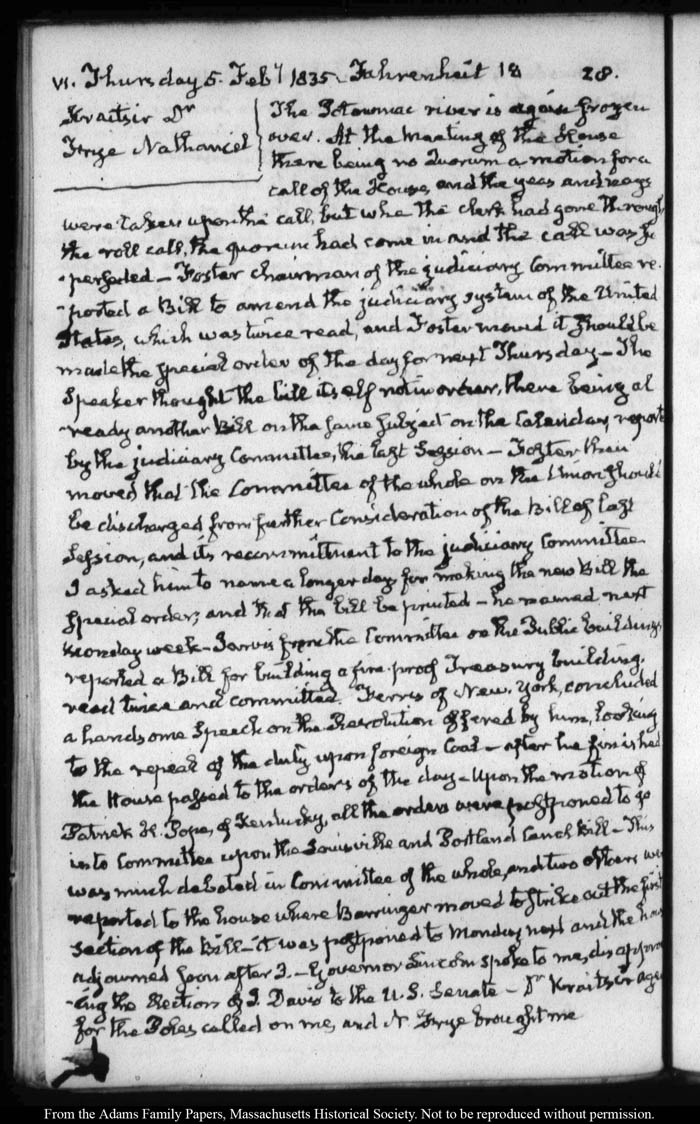 VI. Thursday 5. Feby 1835. Fahrenheit 18 28.
Kraitsir Dr
Frye Nathaniel
The Potowmac river is again frozen
over. At the meeting of the House
there being no Quorum a motion for a
call of the House, and the yeas and nays
were taken upon the call, but whe the clerk had gone through
the roll call, the quorum had come in and the call was su
-perseded — Foster chairman of the judiciary Committee re.
-ported a Bill to amend the judiciary system of the United
States, which was twice read, and Foster moved it should be
made the special order of the day for next Thursday — The
Speaker thought the bill itself not in order, there being al
-ready another Bill on the same subject on the Calendar, reported
by the judiciary Committee, the last Session — Foster then
moved that the Committee of the whole on the Union should
be discharged from further Consideration of the Bill of last
Session, and its recommitment to the judiciary Committee
I asked him to name a longer day for making the new Bill the
special order; and that the bill be printed — he named next
Monday week — Jarvis from the Committee on the Public buildings,
reported a Bill for building a fire-proof Treasury building,
read twice and committed. Ferris of New-York, concluded
a handsome Speech on the Resolution offered by him, looking
to the repeal of the duty upon foreign Coal — after he finished
the House passed to the orders of the day — Upon the motion of
Patrick H. Pope, of Kentucky, all the orders were postponed to go
into Committee upon the Louisville and Portland Canal Bill — This
was much debated in Committee of the whole, and two others we
reported to the house where Barringer moved to strike out the first
section of the Bill — it was postponed to Monday next and the hou
adjourned soon after 3. — Governor Lincoln spoke to me, disapprov
-ing the Election of J. Davis to the U.S. Senate — Dr Kraitsir age
for the Poles called on me, and N. Frye brought me
From the Adams Family Papers, Massachusetts Historical Society. Not to be reproduced without permission.